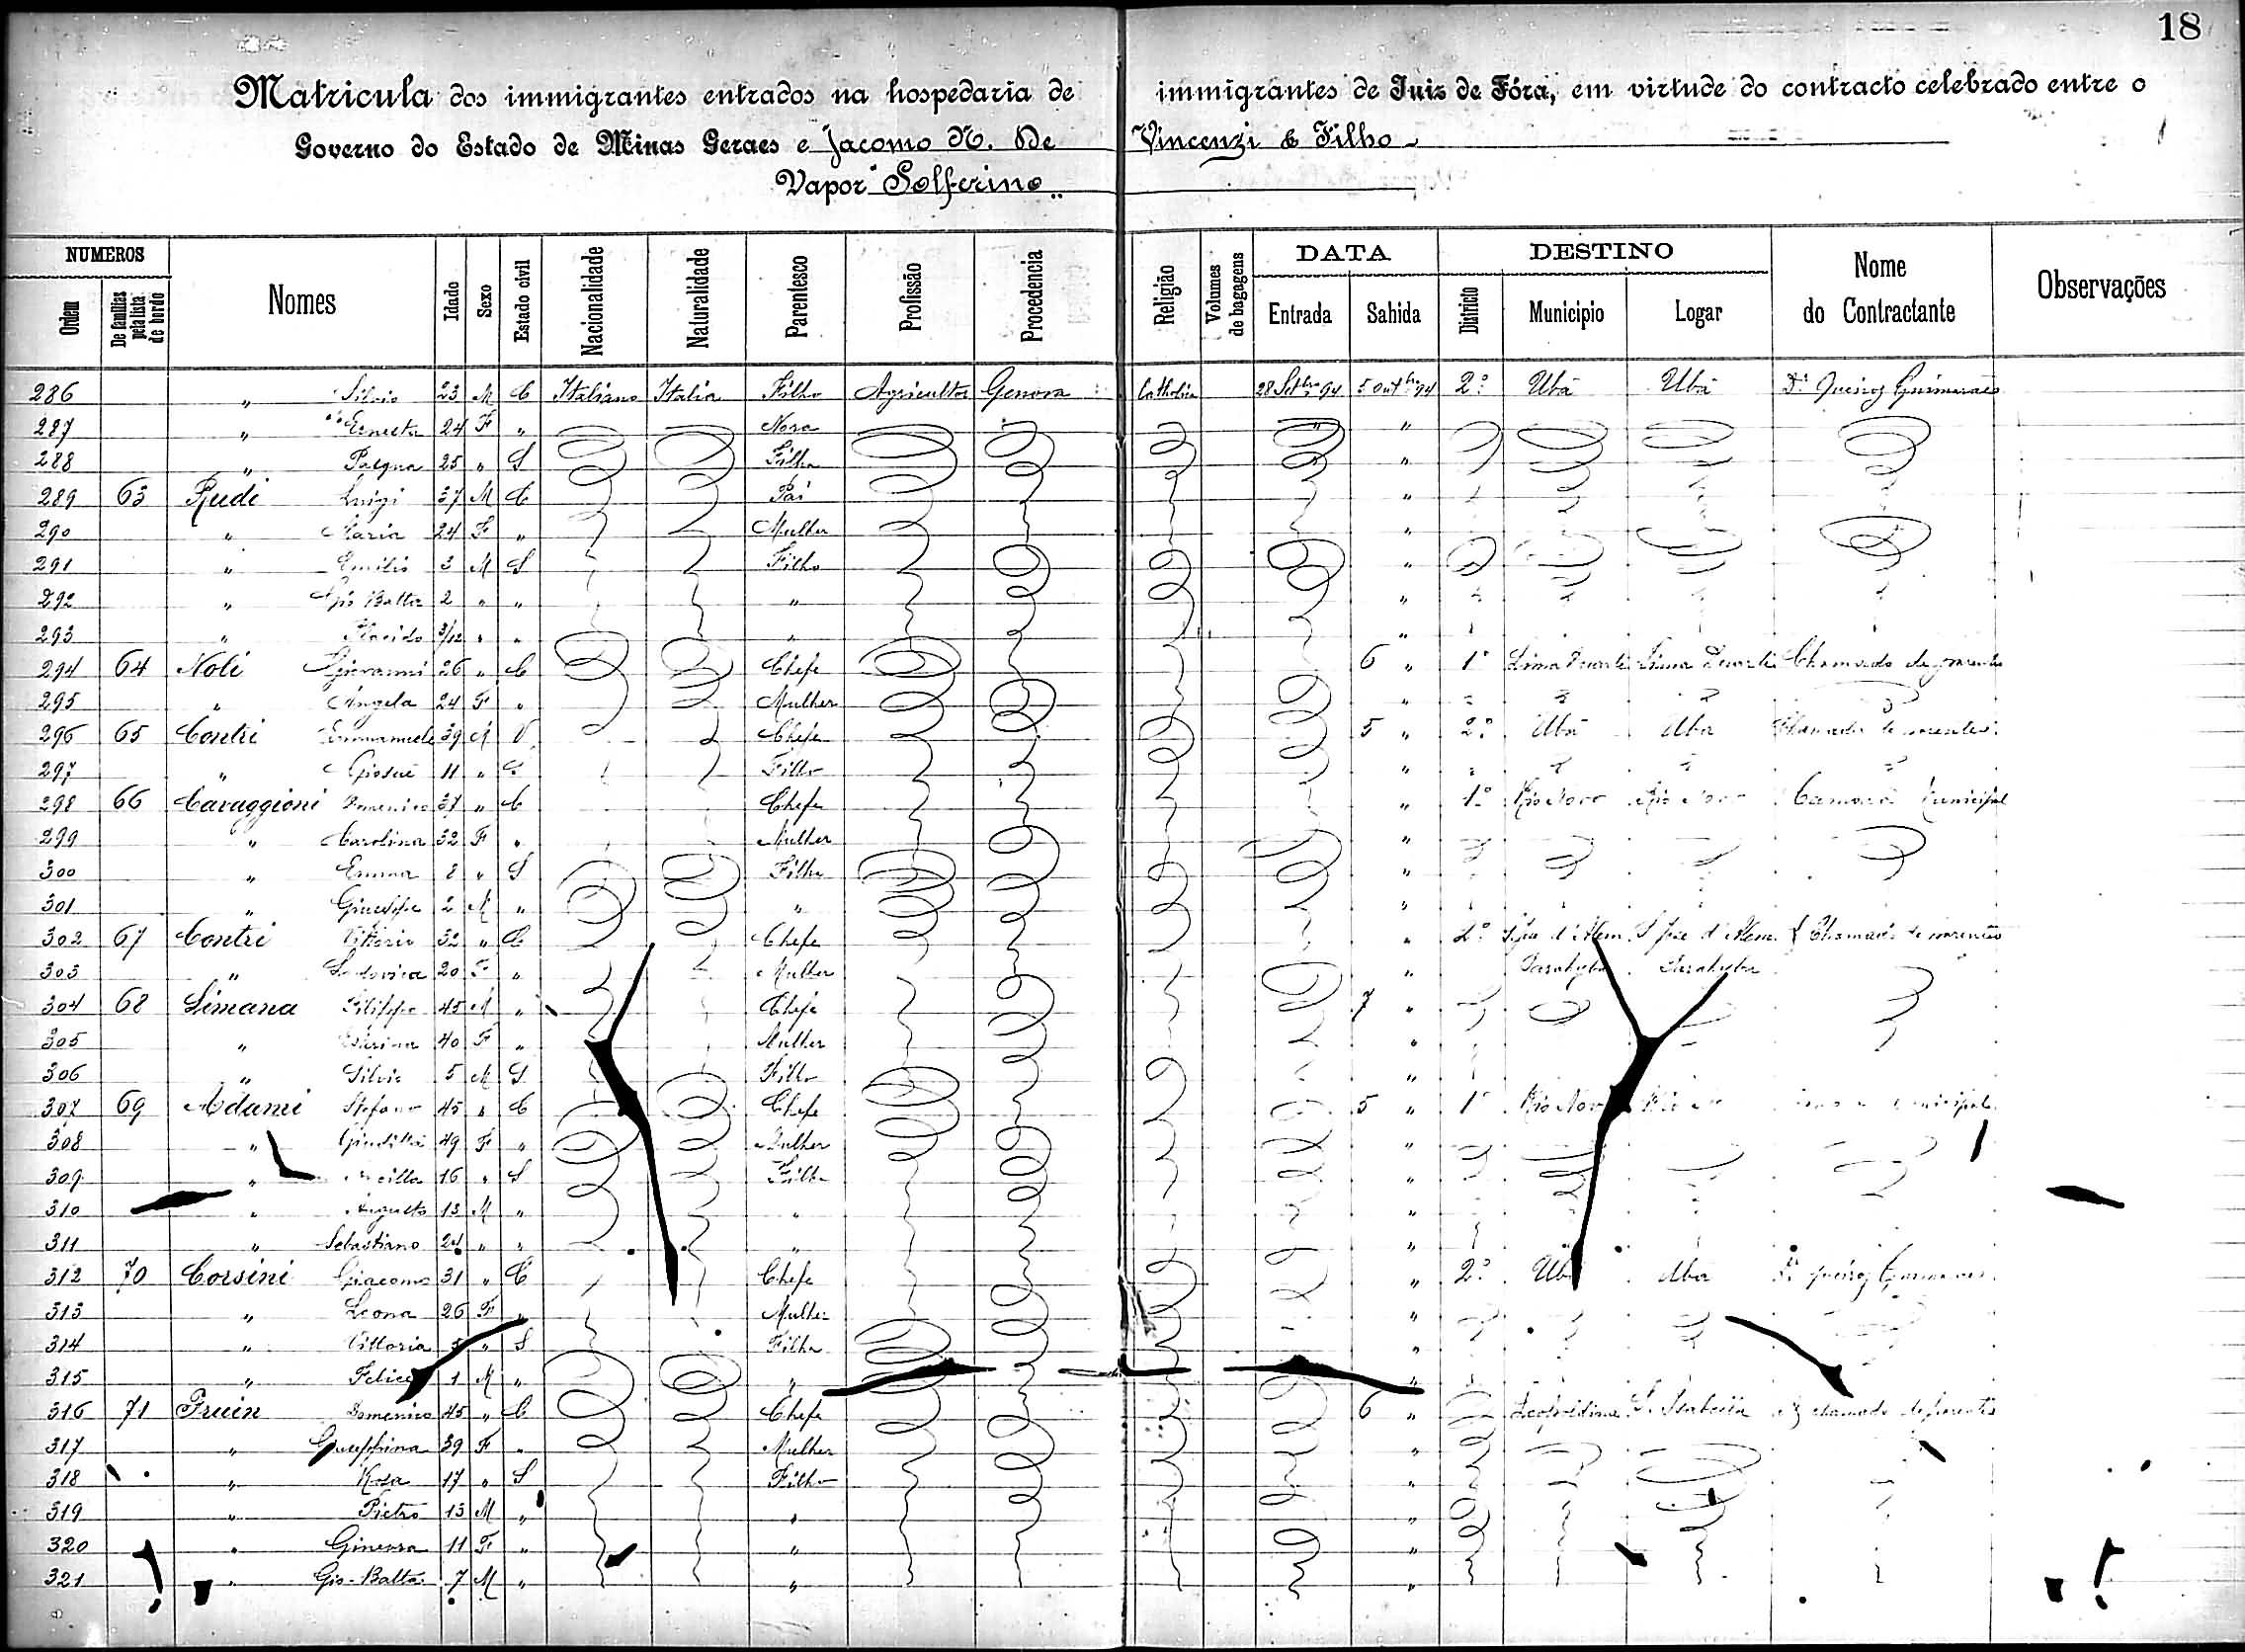 18
Matricula dos immigrantes entrados na hospedaria de immigrantes de Juiz de Fóra, em virtude do contracto celebrado entre o
Governo do Estado de Minas Geraes e Jacomo N. De Vincenzi & Filho
Vapor "Solferino"
NUMEROS Nomes Idade Sexo Estado civil Nacionalidade Naturalidade Parentesco Profissão Procedencia Religião Volumes de bagagens DATA DESTINO Nome do Contractante Observações
Ordem De familias pela lista de bordo Entrada Sahida Districto Municipio Logar
286 " Silvio 23 M C Italiano Italia Filho Agricultor Genova Catholica 28 Setbro 94 5 Outbro 94 2º Ubá Ubá Dr. Queiroz Guimarães
287 " 24 F " Nora " "
288 " 25 " S Filha " "
289 63 Rudi Luigi 37 M C Pai "
290 " Maria 24 F " Mulher "
291 " Emilio 3 M S Filho "
292 " Gio Batta 2 " " " "
293 " Placido 3/12 " " " "
294 64 Noli Giovanni 26 " C Chefe 6 " 1º Lima Duarte Lima Duarte Chamado de parente
295 " Angela 24 F " Mulher "
296 65 Contri Emmanuele 39 M V Chefe 5 " 2º Ubá Ubá Chamado de parentes
297 " Giosué 11 " Filho "
298 66 Cavaggioni Domenico 37 " C Chefe " 1º Rio Novo Rio Novo Camara Municipal
299 " Carolina 32 F " Mulher "
300 " Emma 8 " S Filha "
301 " Giuseppe 2 M " " "
302 67 Contri Vittorio 32 " C Chefe " 2º S. José d'Alem S. José d'Alem Chamado de parentes
303 " Ludovica 20 F " Mulher " Parahyba Parahyba
304 68 Simana Filippo 45 M " Chefe 7 "
305 " 40 F " Mulher "
306 " Silvio 5 M S Filho "
307 69 Adami Stefano 45 " C Chefe 5 " 1º Rio Novo Municipal
308 " Giuditta 49 F " Mulher "
309 " 16 " S Filha "
310 " Augusto 13 M " " "
311 " Sebastiano 24 " " " "
312 70 Corsini Giacomo 31 " C Chefe " 2º Ubá Ubá Dr. Queiroz Guimarães
313 " Leona 26 F " Mulher "
314 " Vittoria 5 " S Filha "
315 " Felice 1 M " " "
316 71 Domenico 45 " C Chefe 6 " Leopoldina S. Izabel chamado de parentes
317 " Giuseppina 39 F " Mulher "
318 " Rosa 17 " S Filha "
319 " Pietro 13 M " " "
320 " Ginevra 11 F " " "
321 " Gio-Batta 7 M " " "